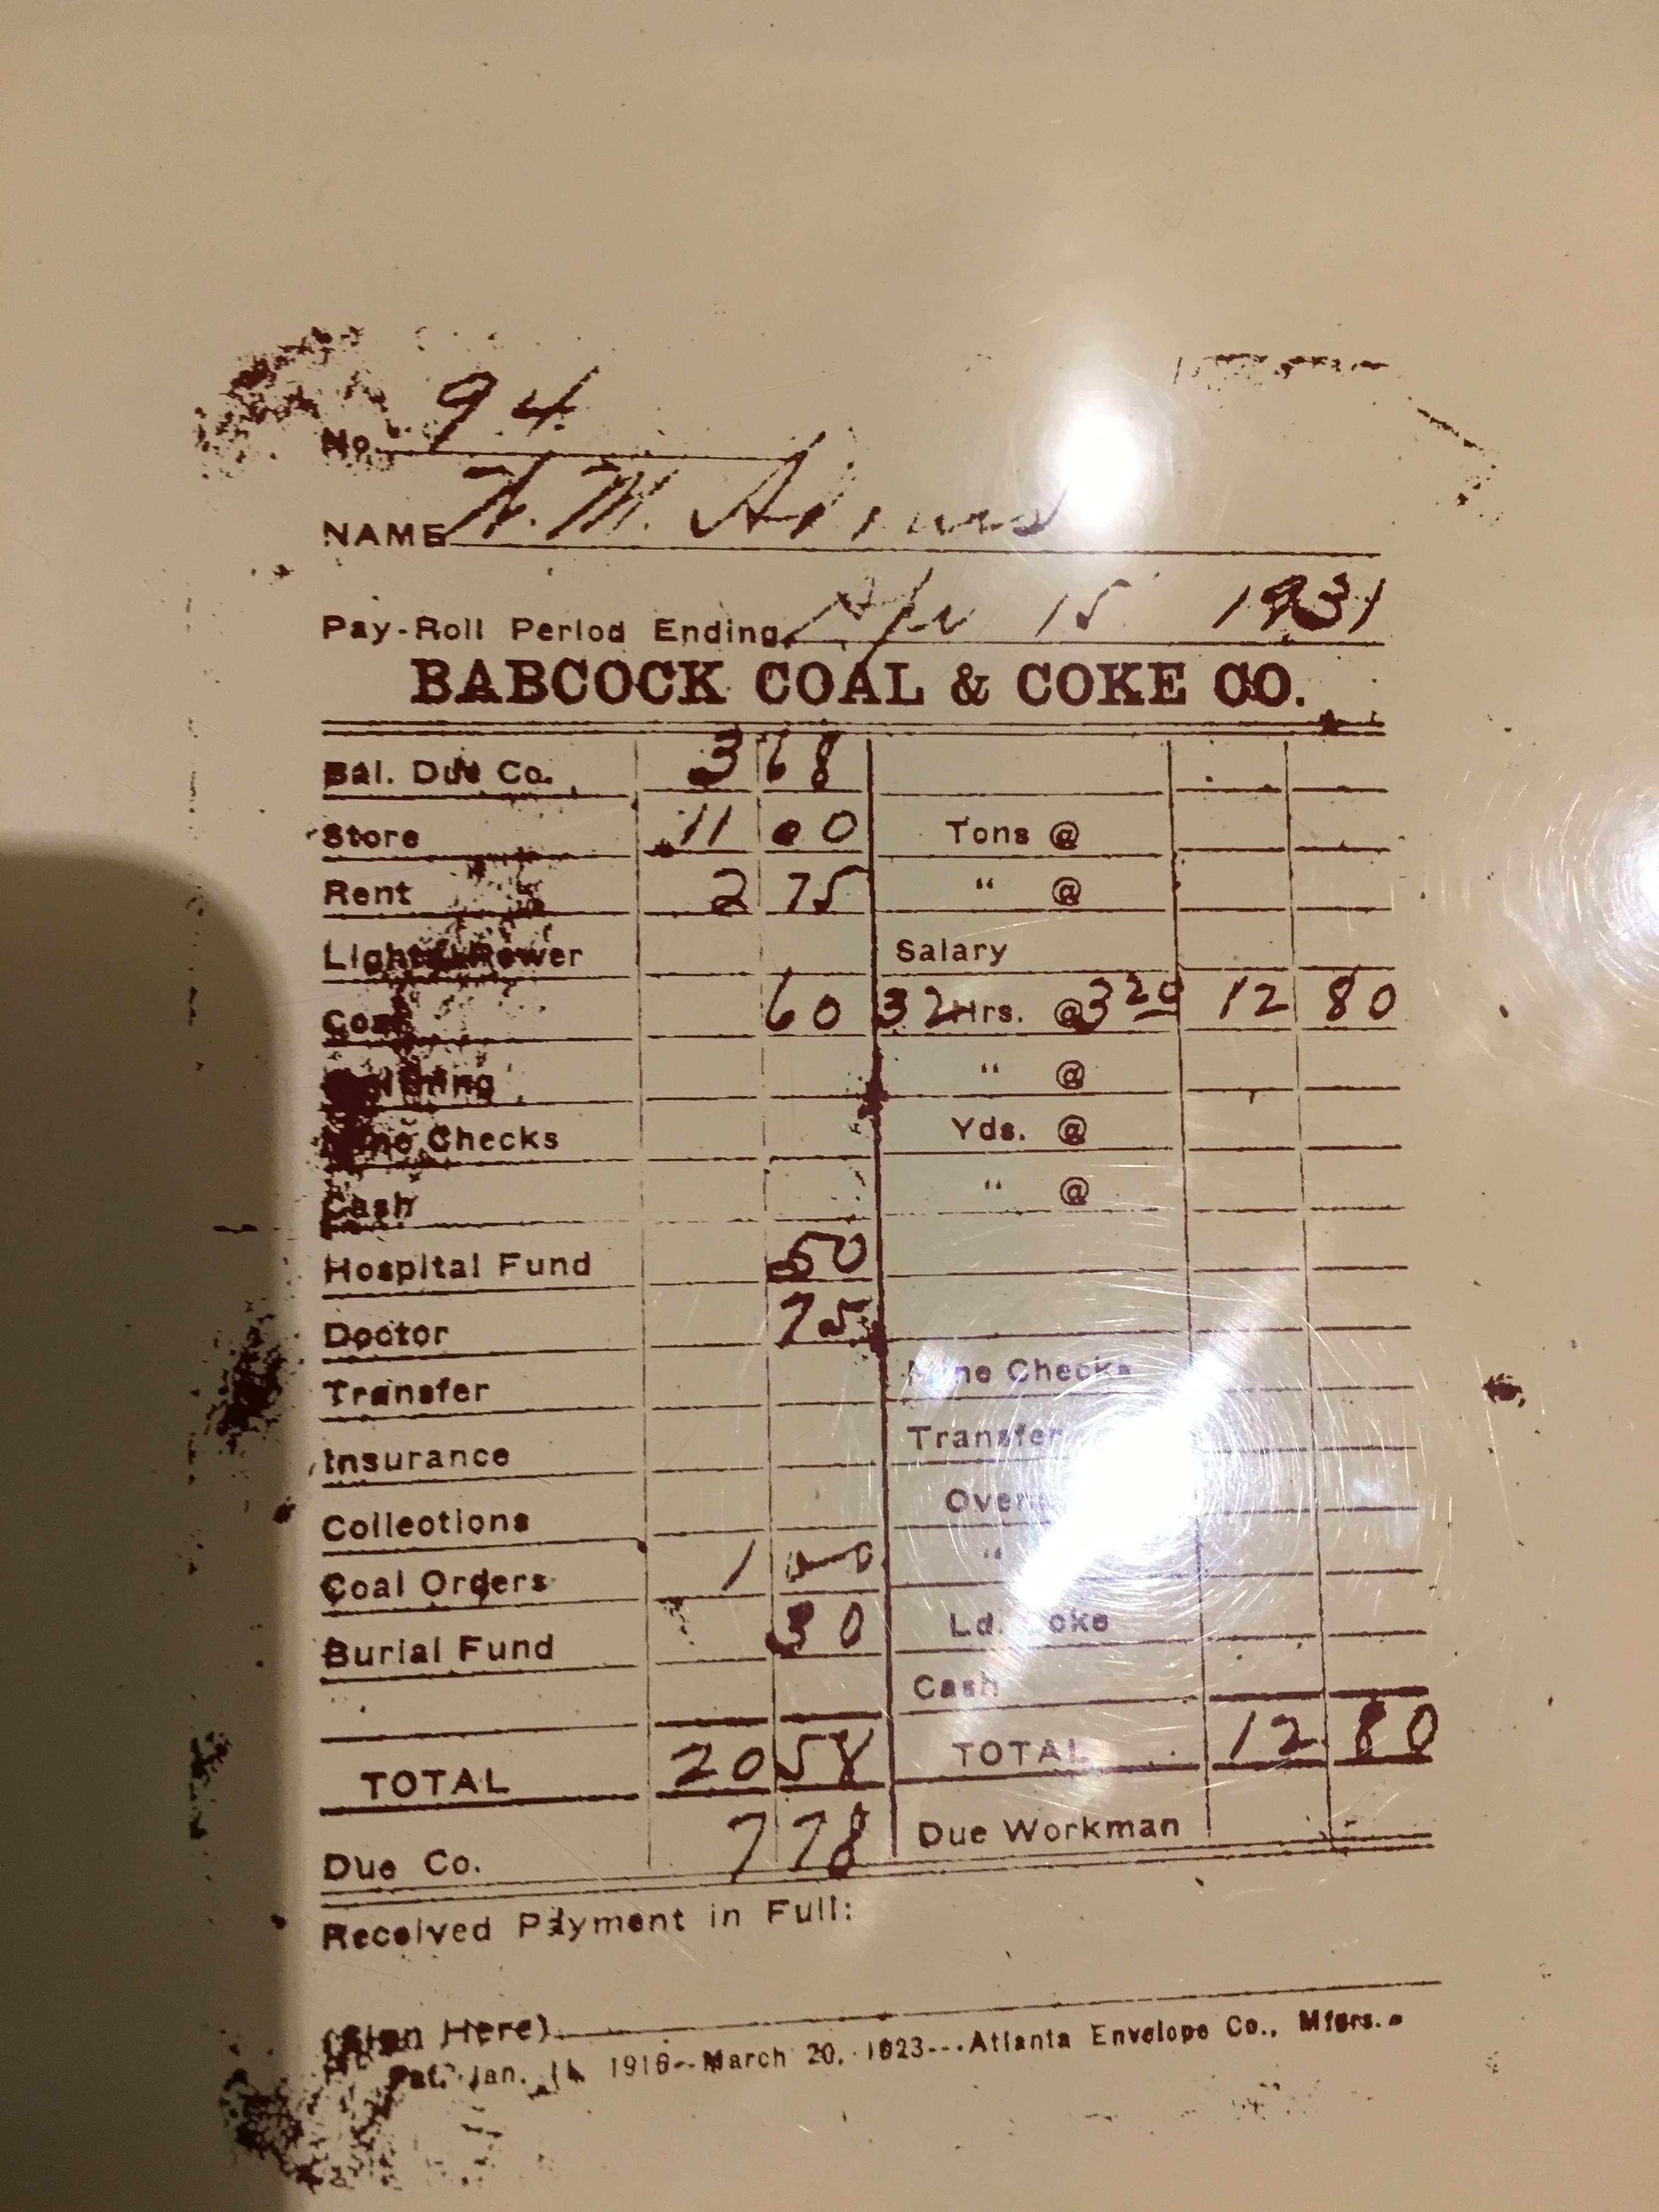 No. 94
NAME H. M. Adams
Pay-Roll Period Ending Apr 15 1931
BABCOCK COAL & COKE CO.
Bal. Due Co. 3 68
Store 11 00 Tons @
Rent 2 75 " @
Light & Power Salary
Coal 60 32 Hrs. @ 3 20 12 80
" @
Mine Checks Yds. @
Cash " @
Hospital Fund 50
Doctor 75
Transfer Mine Checks
Insurance Transfer
Collections
Coal Orders 1 00 "
Burial Fund 30 Ld. Coke
Cash
TOTAL 20 58 TOTAL 12 80
Due Co. 7 78 Due Workman
Received Payment in Full:
(Sign Here)
Pat. Jan. 1916--March 20, 1923---Atlanta Envelope Co., Mfgrs.